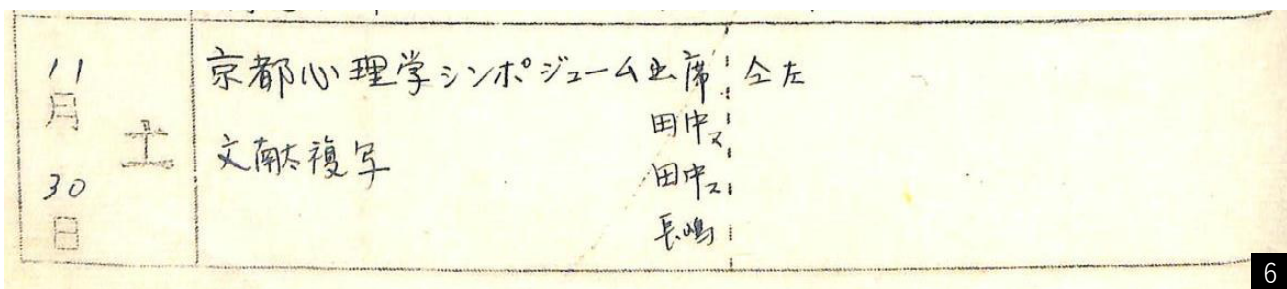 11月30日
土
京都心理学シンポジューム出席 仝左
田中
文献複写 田中
長嶋
6